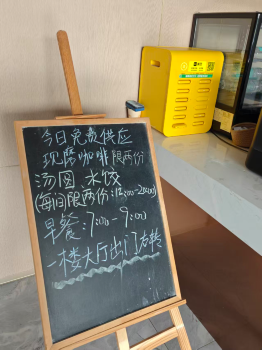 今日免费供应
现磨咖啡限两份
汤圆、水饺
(每间限两份:12:00-23:00)
早餐:7:00-9:00
一楼大厅出门右转